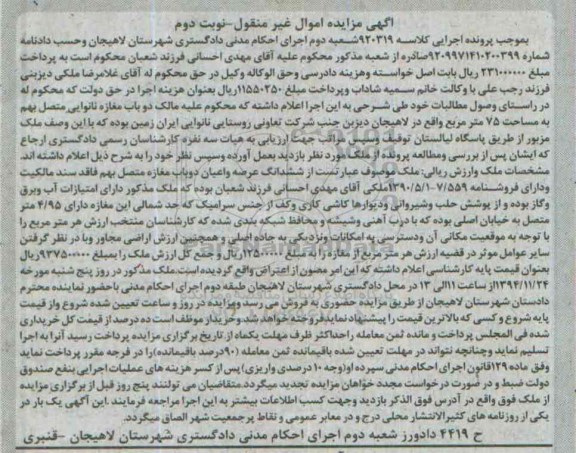 آگهی مزایده اموال غیر منقول-نوبت دوم
بموجب پرونده اجرایی کلاسه ۹۲۰۳۱۹شعبه دوم اجرای احکام مدنی دادگستری شهرستان لاهیجان وحسب دادنامه
شماره ۹۲۰۹۹۷۱۴۱۰۲۰۰۳۹۹صادره از شعبه مذکور محکوم علیه آقای مهدی احسانی فرزند شعبان محکوم است به پرداخت
مبلغ ۲۳۱۰۰۰۰۰۰ ریال بابت اصل خواسته وهزینه دادرسی وحق الوکاله وکیل در حق محکوم له آقای غلامرضا ملکی دیزبنی
فرزند رجب علی با وکالت خانم سمیه شاداب وپرداخت مبلغ ۱۱۵۵۰۳۵۰ریال بعنوان هزینه اجرا در حق دولت که محکوم له
در راستای وصول مطالبات خود طی شرحی به این اجرا اعلام داشته که محکوم علیه مالک دو باب مغازه نانوایی متصل بهم
به مساحت ۷۵ متر مربع واقع در لاهیجان دیزبن جنب شرکت تعاونی روستایی نانوایی ایران زمین بوده که با این وصف ملک
مزبور از طریق پاسگاه لیالستان توقیف سپس مراتب جهت ارزیابی به هیات سه نفره کارشناسان رسمی دادگستری ارجاع
که ایشان پس از بررسی ومطالعه پرونده از ملک مورد نظر بازدید بعمل آورده وسپس نظر خود را به شرح ذیل اعلام داشته اند.
مشخصات ملک وارزش ریالی: ملک موصوف عبارتست از ششدانگ عرصه واعیان دوباب مغازه متصل بهم فاقد سند مالکیت
ودارای فروشنامه ۷/۵۵۹-۱۳۹۰/۵/۱ملکی آقای مهدی احسانی فرزند شعبان بوده که ملک مذکور دارای امتیازات آب وبرق
وگاز بوده و از پوشش حلب وشیروانی ودیوارها کاشی کاری وکف از جنس سرامیک که حد شمالی این مغازه دارای ۴/۹۵ متر
متصل به خیابان اصلی بوده که با درب آهنی وشیشه و محافظ شبکه بندی شده که کارشناسان منتخب ارزش هر متر مربع را
با توجه به موقعیت مکانی آن ودسترسی به امکانات ونزدیکی به جاده اصلی و همچنین ارزش اراضی مجاور وبا در نظر گرفتن
سایر عوامل موثر در قضیه ارزش هر متر مربع از مغازه را به مبلغ ۱۲۵۰۰۰۰۰ ریال و جمع کل ارزش ملک را بمبلغ ۹۳۷۵۰۰۰۰۰ریال
بعنوان قیمت پایه کارشناسی اعلام داشته که این امر مصون از اعتراض واقع گردیده است.ملک مذکور در روز پنج شنبه مورخه
۱۳۹۴/۱۱/۲۴از ساعت ۱۱الی ۱۲ در محل دادگستری شهرستان لاهیجان طبقه دوم اجرای احکام مدنی باحضور نماینده محترم
دادستان شهرستان لاهیجان از طریق مزایده حضوری به فروش می رسد ومزایده در روز و ساعت تعیین شده شروع واز قیمت
پایه شروع و کسی که بالاترین قیمت را پیشنهاد نماید فروخته خواهد شد وخریدار موظف است ده درصد از قیمت کل خریداری
شده فی المجلس پرداخت و مانده ثمن معامله راحداکثر ظرف مهلت یکماه از تاریخ برگزاری مزایده پرداخت رسید آنرا به اجرا
تسلیم نماید وچنانچه نتواند در مهلت تعیین شده باقیمانده ثمن معامله (۹۰درصد باقیمانده)را در فرجه مقرر پرداخت نماید
وفق ماده ۱۲۹قانون اجرای احکام مدنی سپرده او(وجه ۱۰ درصدی واریزی) پس از کسر هزینه های عملیات اجرایی بنفع صندوق
دولت ضبط و در صورت درخواست مجدد خواهان مزایده تجدید میگردد.متقاضیان می توانند پنج روز قبل از برگزاری مزایده
از ملک فوق واقع در آدرس فوق الذکر بازدید وجهت کسب اطلاعات بیشتر به این اجرا مراجعه فرمایند .این آگهی یک بار در
یکی از روزنامه های کثیرالانتشار محلی درج و در معابر عمومی و نقاط پرجمعیت شهر الصاق میگردد.
ح ۴۴۱۹ دادورز شعبه دوم اجرای احکام مدنی دادگستری شهرستان لاهیجان -قنبری